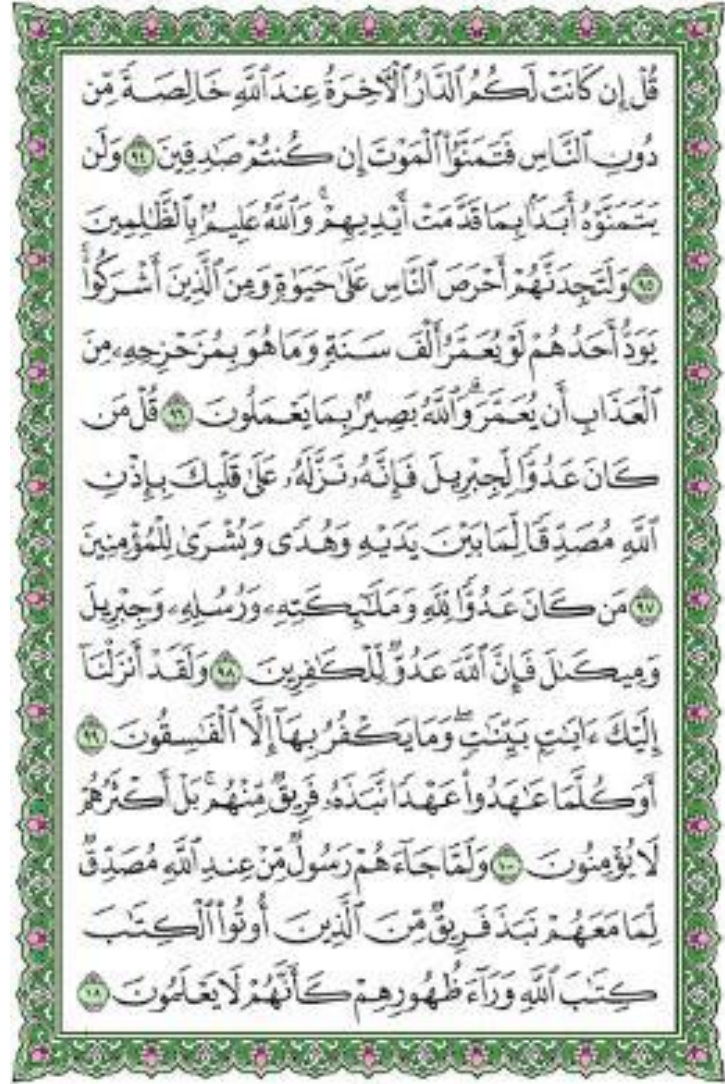 قُلْ إِن كَانَتْ لَكُمُ ٱلدَّارُ ٱلْأَخِرَةُ عِندَ ٱللَّهِ خَالِصَةً مِّن
دُونِ ٱلنَّاسِ فَتَمَنَّوُا۟ ٱلْمَوْتَ إِن كُنتُمْ صَـٰدِقِينَ ٩٤ وَلَن
يَتَمَنَّوْهُ أَبَدًۢا بِمَا قَدَّمَتْ أَيْدِيهِمْ ۗ وَٱللَّهُ عَلِيمٌۢ بِٱلظَّـٰلِمِينَ
٩٥ وَلَتَجِدَنَّهُمْ أَحْرَصَ ٱلنَّاسِ عَلَىٰ حَيَوٰةٍ وَمِنَ ٱلَّذِينَ أَشْرَكُوا۟ ۚ
يَوَدُّ أَحَدُهُمْ لَوْ يُعَمَّرُ أَلْفَ سَنَةٍ وَمَا هُوَ بِمُزَحْزِحِهِۦ مِنَ
ٱلْعَذَابِ أَن يُعَمَّرَ ۗ وَٱللَّهُ بَصِيرٌۢ بِمَا يَعْمَلُونَ ٩٦ قُلْ مَن
كَانَ عَدُوًّا لِّجِبْرِيلَ فَإِنَّهُۥ نَزَّلَهُۥ عَلَىٰ قَلْبِكَ بِإِذْنِ
ٱللَّهِ مُصَدِّقًا لِّمَا بَيْنَ يَدَيْهِ وَهُدًى وَبُشْرَىٰ لِلْمُؤْمِنِينَ
٩٧ مَن كَانَ عَدُوًّا لِّلَّهِ وَمَلَـٰٓئِكَتِهِۦ وَرُسُلِهِۦ وَجِبْرِيلَ
وَمِيكَىٰلَ فَإِنَّ ٱللَّهَ عَدُوٌّ لِّلْكَـٰفِرِينَ ٩٨ وَلَقَدْ أَنزَلْنَآ
إِلَيْكَ ءَايَـٰتٍۭ بَيِّنَـٰتٍ ۖ وَمَا يَكْفُرُ بِهَآ إِلَّا ٱلْفَـٰسِقُونَ ٩٩
أَوَكُلَّمَا عَـٰهَدُوا۟ عَهْدًا نَّبَذَهُۥ فَرِيقٌ مِّنْهُم ۚ بَلْ أَكْثَرُهُمْ
لَا يُؤْمِنُونَ ١٠٠ وَلَمَّا جَآءَهُمْ رَسُولٌ مِّنْ عِندِ ٱللَّهِ مُصَدِّقٌ
لِّمَا مَعَهُمْ نَبَذَ فَرِيقٌ مِّنَ ٱلَّذِينَ أُوتُوا۟ ٱلْكِتَـٰبَ
كِتَـٰبَ ٱللَّهِ وَرَآءَ ظُهُورِهِمْ كَأَنَّهُمْ لَا يَعْلَمُونَ ١٠١